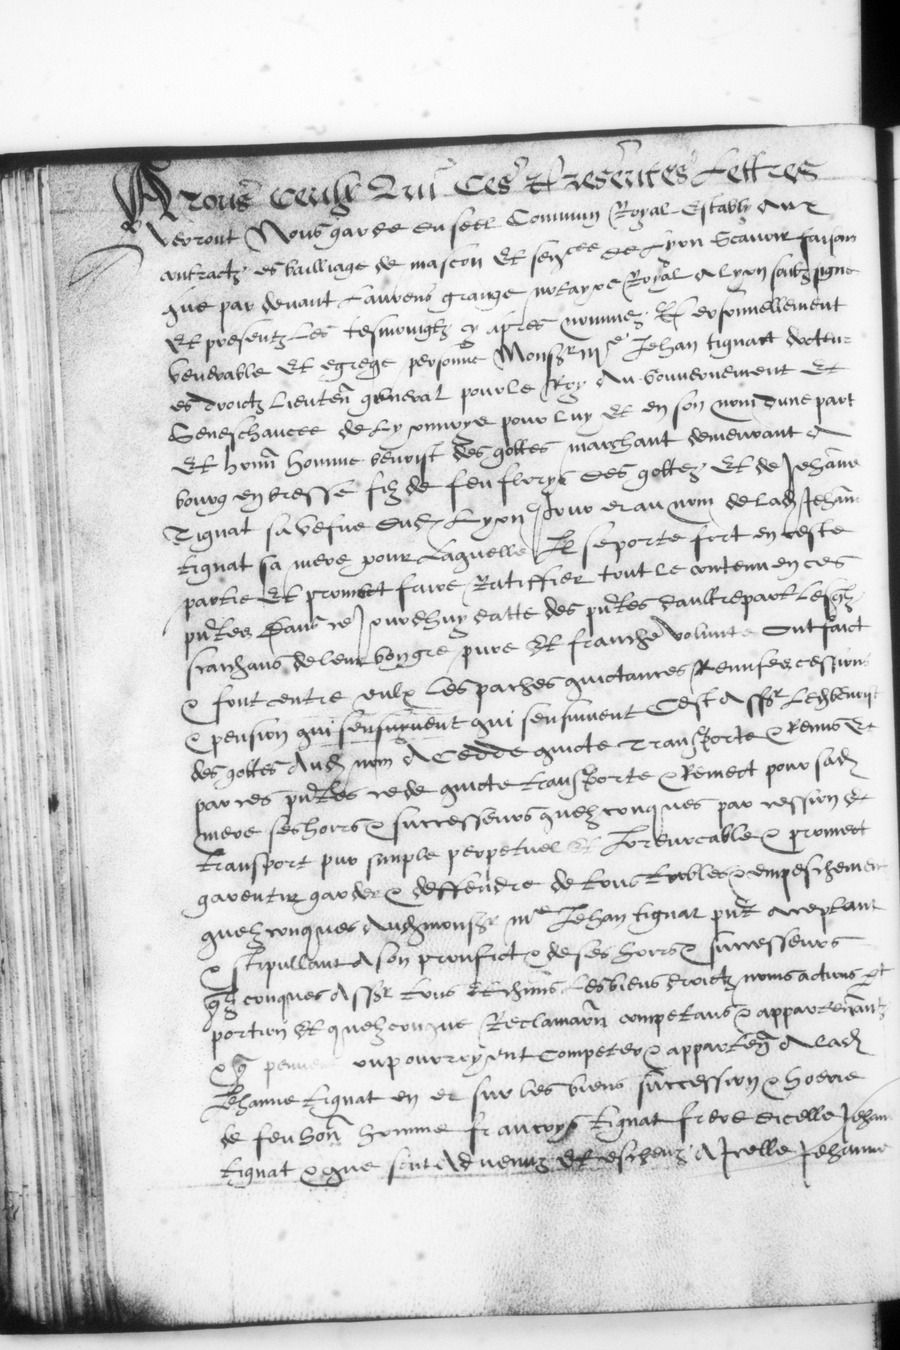 A tous ceulx Qui Ces Presentes Lettres
Verront Nous garde du seel Commun Royal Estably aux
contractz es bailliage de mascon Et sencee de Lyon Scavoir faison
que par devant Laurens grange notayre Royal a lyon soubz signe
Et presentz les tesmoingtz cy apres nommez Personnellement
venerable Et egrege personne Monsr me Jehan tignact docteur
es droictz Lieuten general pour le Roy Au Gouvernement Et
Seneschaucee de Lyonnoys pour luy Et en son nom dune part
Et honn homme benoist des gottes marchant demeurant a
bourg en bresse filz de feu des gottes Et de Jehanne
Tignat sa vefve dud Lyon pour et au nom de lad Jehanne
tignat sa mere pour Laquelle Il se porte fort en ceste
partie Et promect faire Ratiffier tout le contenu en ces
pntes Dans ce Jourdhuy datte des pntes daultre part Lesqlz
scachans de leur bon gre pure Et franche volunte Ont faict
& font entre eulx Les paches quictances Remises cessions
& pension qui sensuyvent qui sensuivent Cest Assr Led benoist
des gottes Aud nom A Cedde quicte Transporte & Remis Et
par ces pntes cede quicte transporte & Remect pour sad
mere ses hoirs & successeurs quelzconques par cession Et
transport pur simple perpetuel et Jrrevocable & promect
garentir garder & deffendre de tous trobles & empeschemens
quelzconques Aud monsr me Jehan tignat pnt acceptant
& stipullant A son prouffict & de ses hoirs & successeurs
qlzconques Assr tous Et chuns Les biens droictz noms actions Et
portion Et quelzconque Reclamaon competans & appartenantz
& q peuvent ou pourroyent competer & apparten A lad
Jehanne tignat en et sur les biens succession & hoerie
de feu hon homme francoys tignat frere dicelle Jehanne
tignat & que sont Advenuz Et escheuz A Jcelle Jehanne